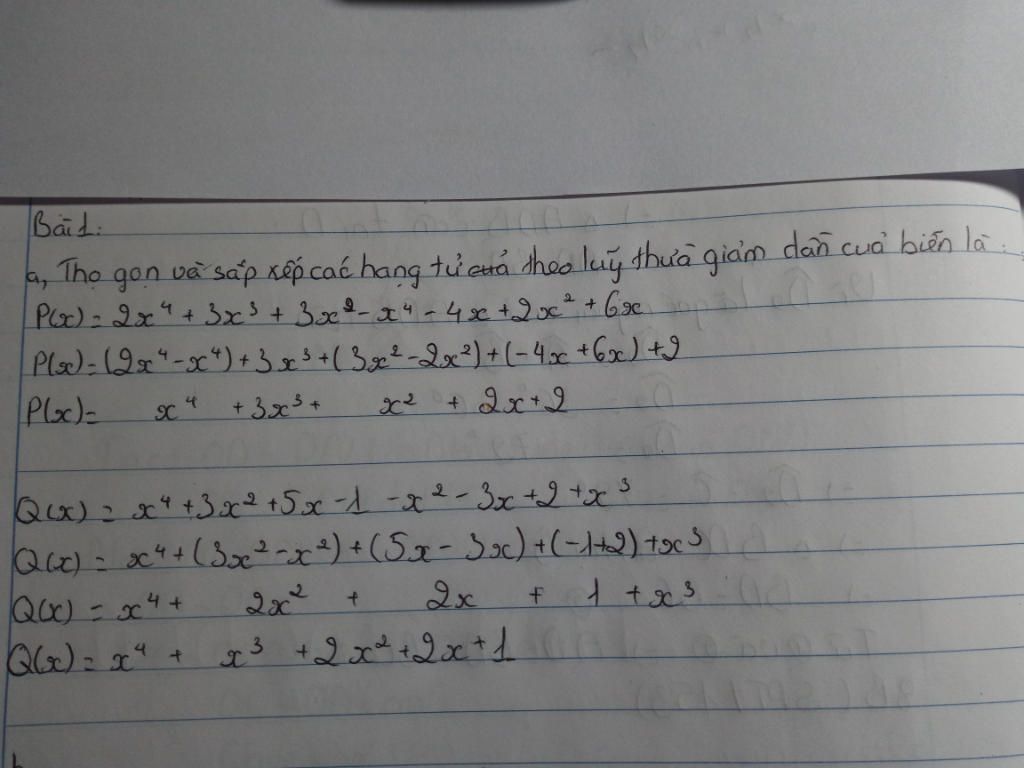 Bài 1:
a, Thọ gọn và sắp xếp các hạng tử của theo luỹ thừa giảm dần của biến là:
P(x) = 2x⁴ + 3x³ + 3x² - x⁴ - 4x + 2x² + 6x
P(x) = (2x⁴ - x⁴) + 3x³ + (3x² - 2x²) + (-4x + 6x) + 2
P(x) = x⁴ + 3x³ + x² + 2x + 2
Q(x) = x⁴ + 3x² + 5x - 1 - x² - 3x + 2 + x³
Q(x) = x⁴ + (3x² - x²) + (5x - 3x) + (-1+2) + x³
Q(x) = x⁴ + 2x² + 2x + 1 + x³
Q(x) = x⁴ + x³ + 2x² + 2x + 1